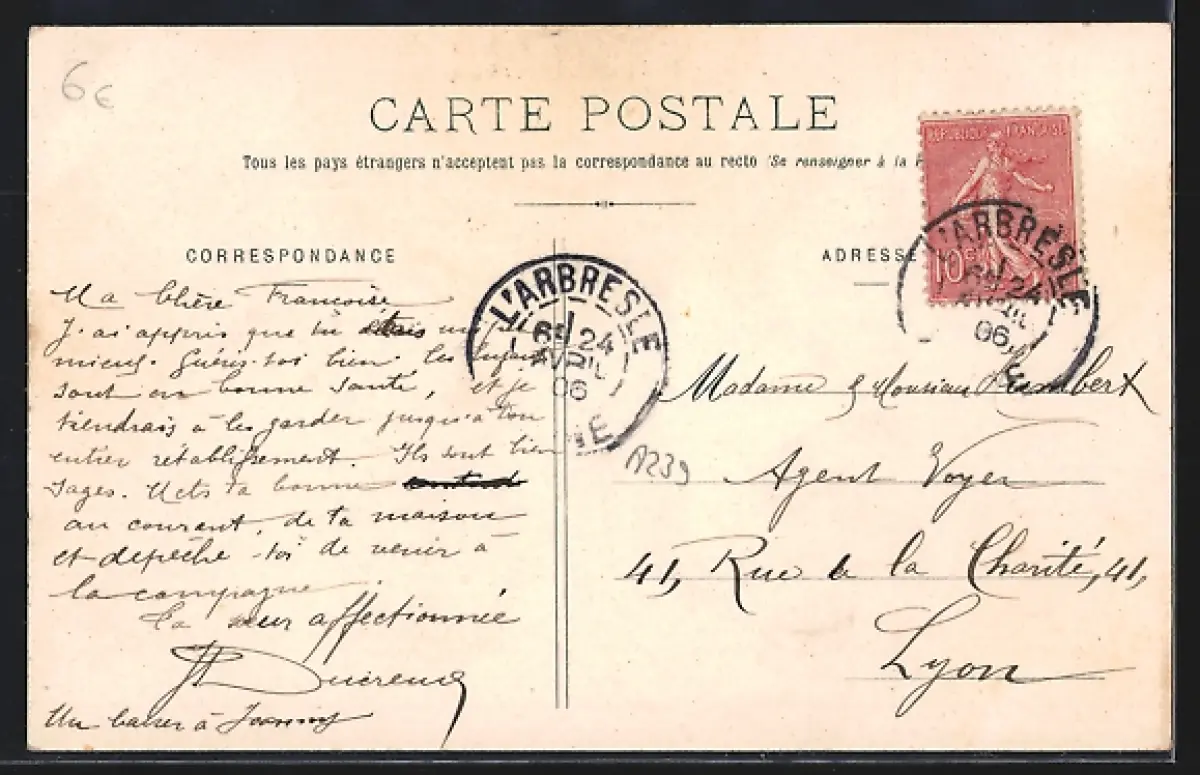 6€
CARTE POSTALE
Tous les pays étrangers n'acceptent pas la correspondance au recto (Se renseigner à la
REPUBLIQUE FRANÇAISE
10c
L'ARBRESLE
24
AVRIL
06
CORRESPONDANCE
ADRESSE
L'ARBRESLE
24
AVRIL
06
Ma Chère Françoise
J'ai appris que tu étais un peu
mieux. Guéris-toi bien. les enfants
sont en bonne santé, et je
tiendrais à les garder jusqu'à ton
entier rétablissement. Ils sont bien
sages. Mets ta bonne
au courant, de ta maison
et dépêche-toi de venir à
la campagne
Ta sœur affectionnée
Ducreux
Un baiser à Joanny
A239
Madame & Monsieur Lambert
Agent Voyer
41, Rue de la Charité, 41,
Lyon